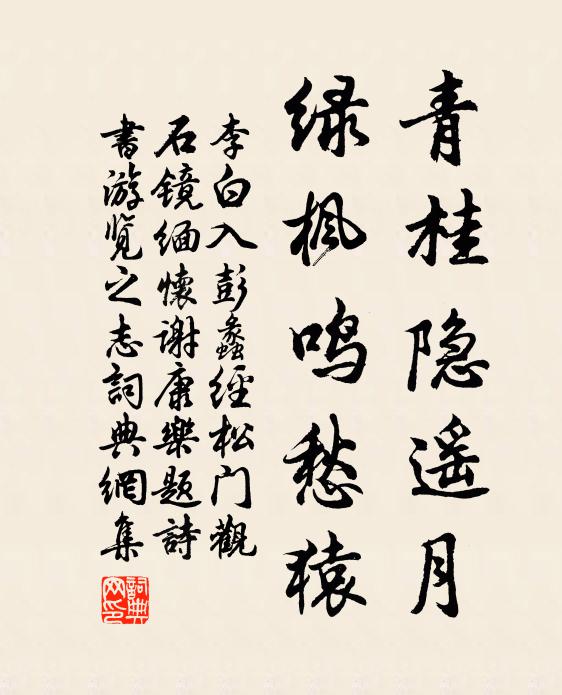 青桂隐遥月
绿枫鸣愁猿
李白入彭蠡經松门觀
石镜缅懷谢康樂题詩
書游览之志詞典網集
詞典网印